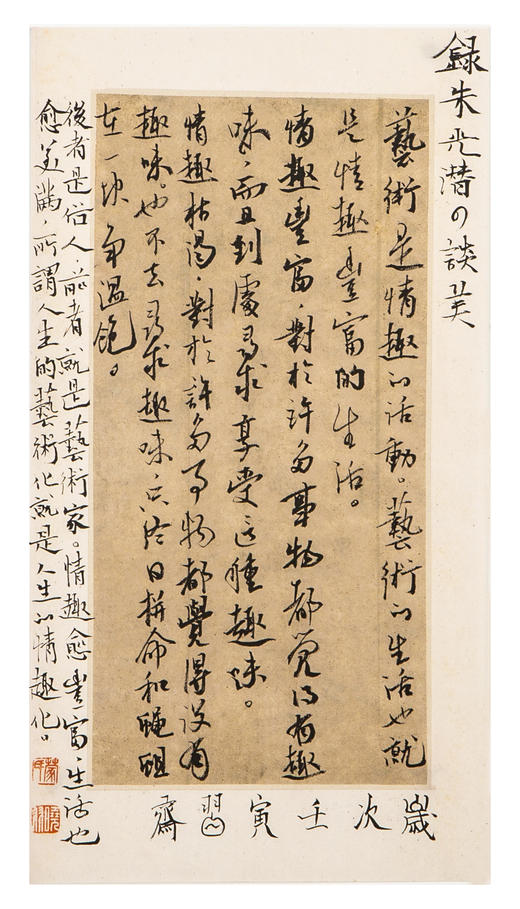 錄朱光潛の談美
藝術是情趣的活動。藝術的生活也就
是情趣豐富的生活。
情趣豐富，對於許多事物都覺得有趣
味，而且到處尋求享受這種趣味。
情趣枯渴，對於許多事物都覺得沒有
趣味。也不去尋求趣味，只終日拼命和蠅蛆
在一块争溫飽。
後者是俗人，前者就是藝術家。情趣愈豐富生活也
愈美滿，所謂人生的藝術化就是人生的情趣化。
歲次壬寅習齋